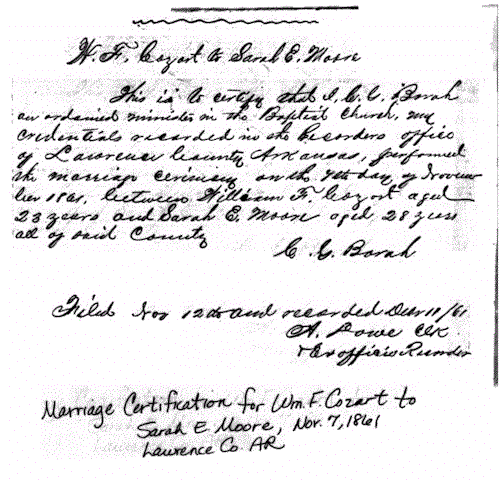 W. F. Cozart to Sarah E. Moore
This is to certify that I, C. G. Borah
an ordained minister in the Baptist Church, my
credentials recorded in the Recorders office
of Lawrence County Arkansas, performed
the marriage cerimony on the 7th day of Novem
ber 1861, between William F. Cozart aged
23 years and Sarah E. Moore aged 28 years
all of said County
C. G. Borah
Filed Nov 12th and recorded Decr 11/61
A. Lowe Clk
& Ex officio Recorder
Marriage Certification for Wm. F. Cozart to
Sarah E Moore, Nov. 7, 1861
Lawrence Co. AR